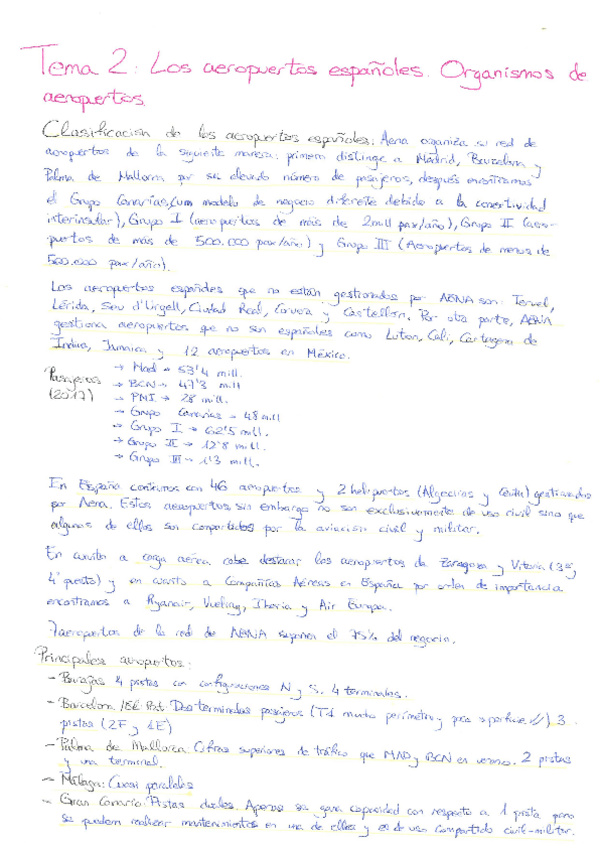 Tema 2: Los aeropuertos españoles. Organismos de
aeropuertos.
Clasificación de los aeropuertos españoles: Aena organiza su red de
aeropuertos de la siguiente manera: primero distinge a Madrid, Barcelona y
Palma de Mallorca por su elevado número de pasajeros, después encontramos
el Grupo Canarias (un modelo de negocio diferente debido a la conectividad
interinsular), Grupo I (aeropuertos de más de 2mill pax/año), Grupo II (aero-
puertos de más de 500.000 pax/año) y Grupo III (Aeropuertos de menos de
500.000 pax/año).
Los aeropuertos españoles que no están gestionados por AENA son: Teruel,
Lérida, Seu d'Urgell, Ciudad Real, Corvera y Castellón. Por otra parte, AENA
gestiona aeropuertos que no son españoles como Luton, Cali, Cartagena de
Indias, Jamaica y 12 aeropuertos en México.
Pasajeros
(2017)
→ Mad → 53'4 mill.
→ BCN → 47'3 mill
→ PMI → 28 mill.
→ Grupo Canarias → 48 mill
→ Grupo I → 62'5 mill.
→ Grupo II → 12'8 mill.
→ Grupo III → 1'3 mill.
En España contamos con 46 aeropuertos y 2 helipuertos (Algeciras y Ceuta) gestionados
por Aena. Estos aeropuertos sin embargo no son exclusivamente de uso civil sino que
algunos de ellos son compartidos por la aviación civil y militar.
En cuanto a carga aérea cabe destacar los aeropuertos de Zaragoza y Vitoria (3º y
4º puesto) y en cuanto a Compañías Aéreas en España por orden de importancia
encontramos a Ryanair, Vueling, Iberia y Air Europa.
7 aeropuertos de la red de AENA suponen el 75% del negocio.
Principales aeropuertos:
- Barajas 4 pistas con configuraciones N y S. 4 terminales.
- Barcelona /El Prat: Dos terminales pasajeros (T1 mucho perímetro y poca superficie //) 3
pistas (2F y 1E)
- Palma de Mallorca: Cifras superiores de tráfico que MAD y BCN en verano. 2 pistas
y una terminal.
- Málaga: Cuasi paralelas
- Gran Canaria: Pistas duales. Apenas se gana capacidad con respecto a 1 pista pero
se pueden realizar mantenimientos en una de ellas y es de uso compartido civil-militar.